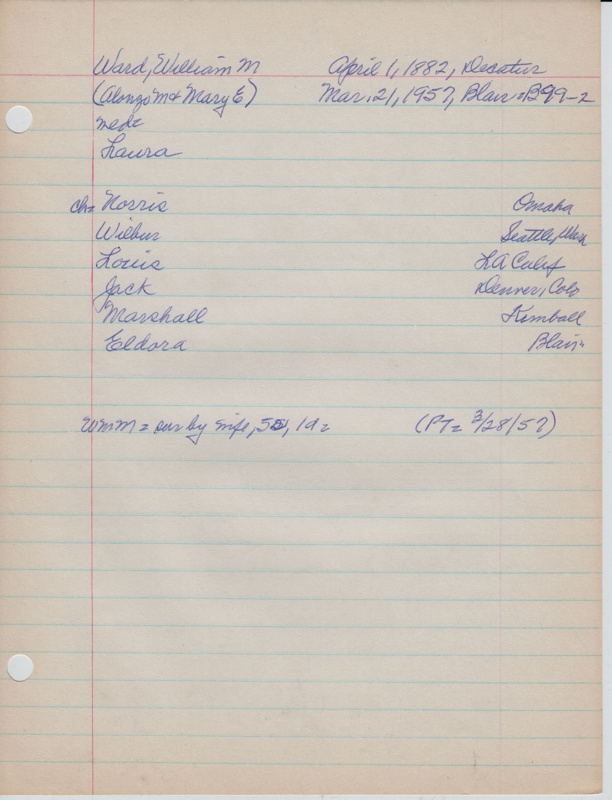 Ward, William M April 1, 1882, Decatur
(Alonzo M & Mary E) Mar. 21, 1957, Blair = B99-2
Laura
ch= Norris Omaha
Wilbur Seattle, Wash
Louis LA Calif
Jack Denver, Colo
Marshall Kimball
Eldora Blair
Wm M = sur by wife, 5s, 1d = (PT= 3/28/57)